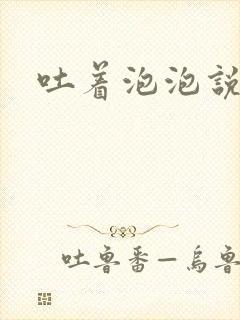 吐着泡泡説
吐魯番—烏魯